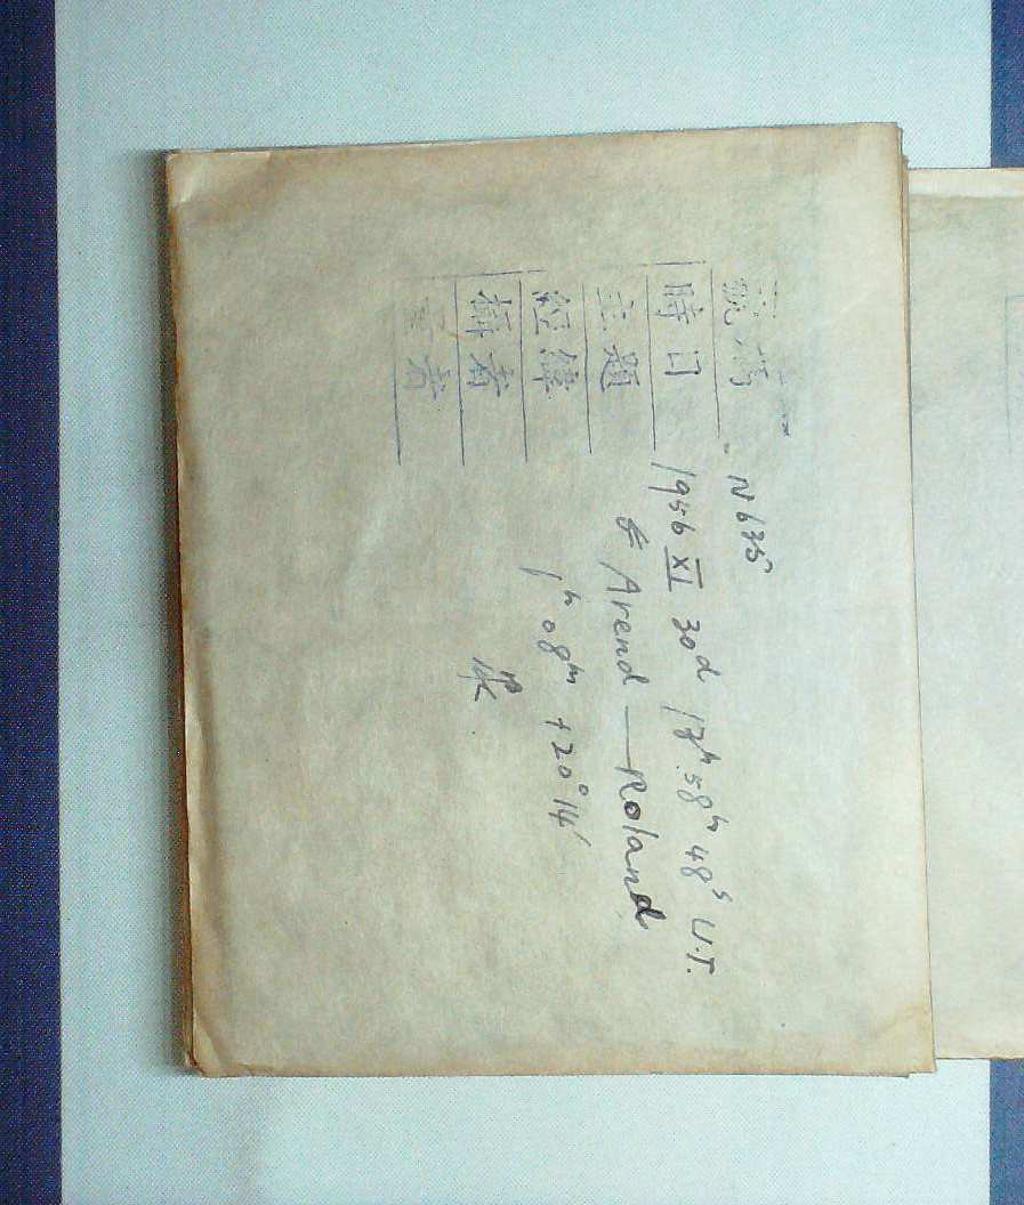 N 635
時日 1956 XI 30d 58m 48s U.T.
主題 Arend — Roland
經緯 1h 08m +20° 14′
攝者 张
者